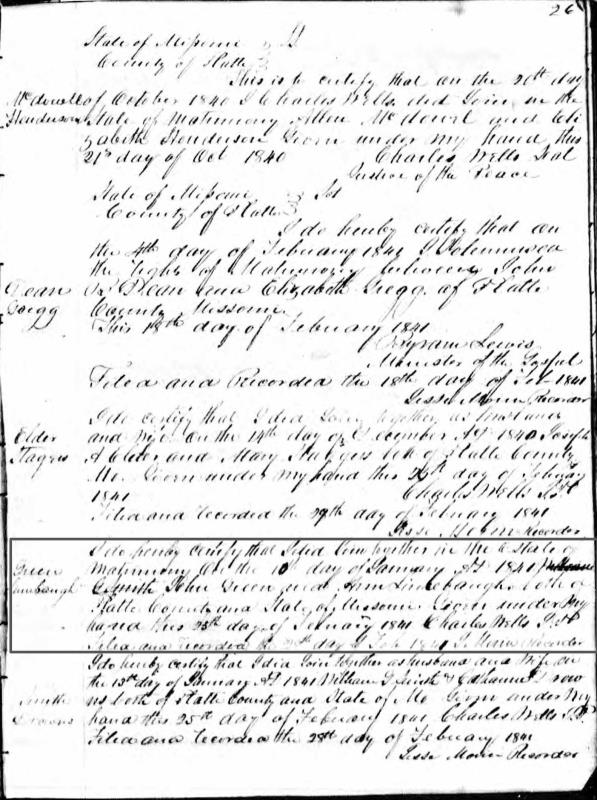 26
State of Missouri
County of Platte
This is to certify that on the 20th day
McDowell of October 1840 I Charles Wells did Join in the
Henderson State of Matrimony Allen McDowel and Eli
zabeth Henderson Given under my hand this
21st day of Oct 1840 Charles Wells Seal
Justice of the Peace
State of Missouri
County of Platte
I do hereby certify that on
the 4th day of February 1841 I Solemnised
the rights of Matrimony between John
Dean Dean and Elizabeth Gregg of Platte
Gregg County Missouri
This 18th day of February 1841
Lewis
Minister of the Gospel
Filed and Recorded the 18th day of Feb 1841
Jesse Morin Recorder
I do certify that I did Join together as husband
Elder and wife on the 14th day of December AD 1840 Joseph
A Elder and Mary both of Platte County
Mo Given under my hand this 25th day of February
1841 Charles Wells
Filed and recorded the day of February 1841
Jesse Morin Recorder
I do hereby certify that I did Join together in the State of
Green Matrimony on the day of January AD 1841
John Green and Ann Limebaugh both of
Platte County and State of Missouri Given under my
hand this 25th day of February 1841 Charles Wells
Filed and recorded the day of Feb 1841 J. Morin Recorder
I do hereby certify that I did Join together as husband and wife on
the day of January AD 1841 William and
both of Platte County and State of Mo Given under my
hand this 25th day of February 1841 Charles Wells
Filed and recorded the 28th day of February 1841
Jesse Morin Recorder